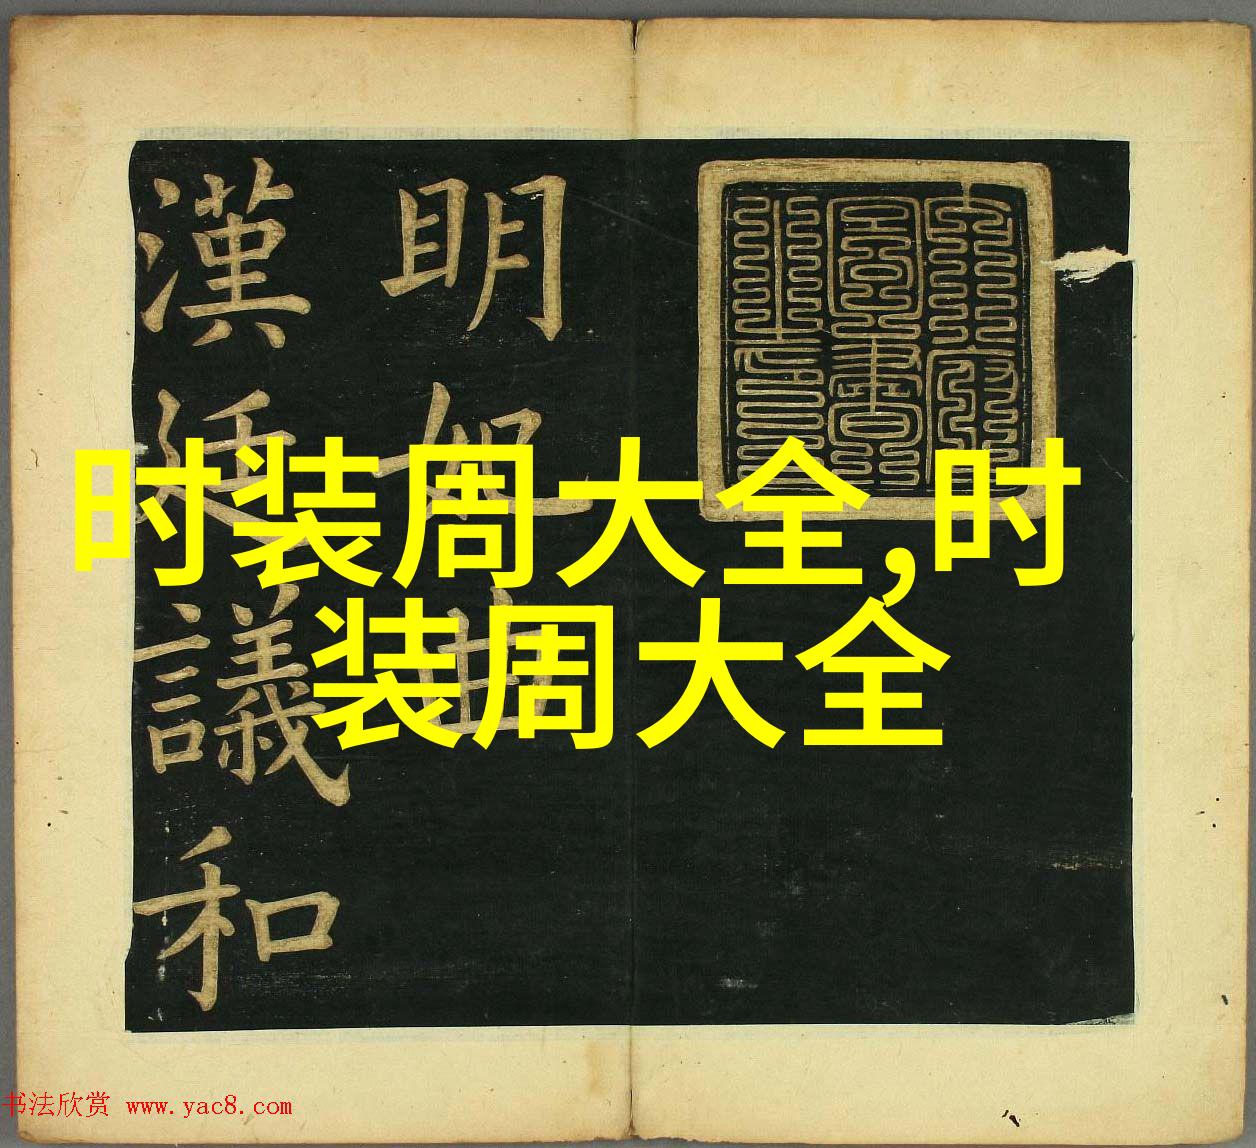 时装周大全,时
装周大全
明妃曲
漢議和
书法欣赏 www.yac8.com